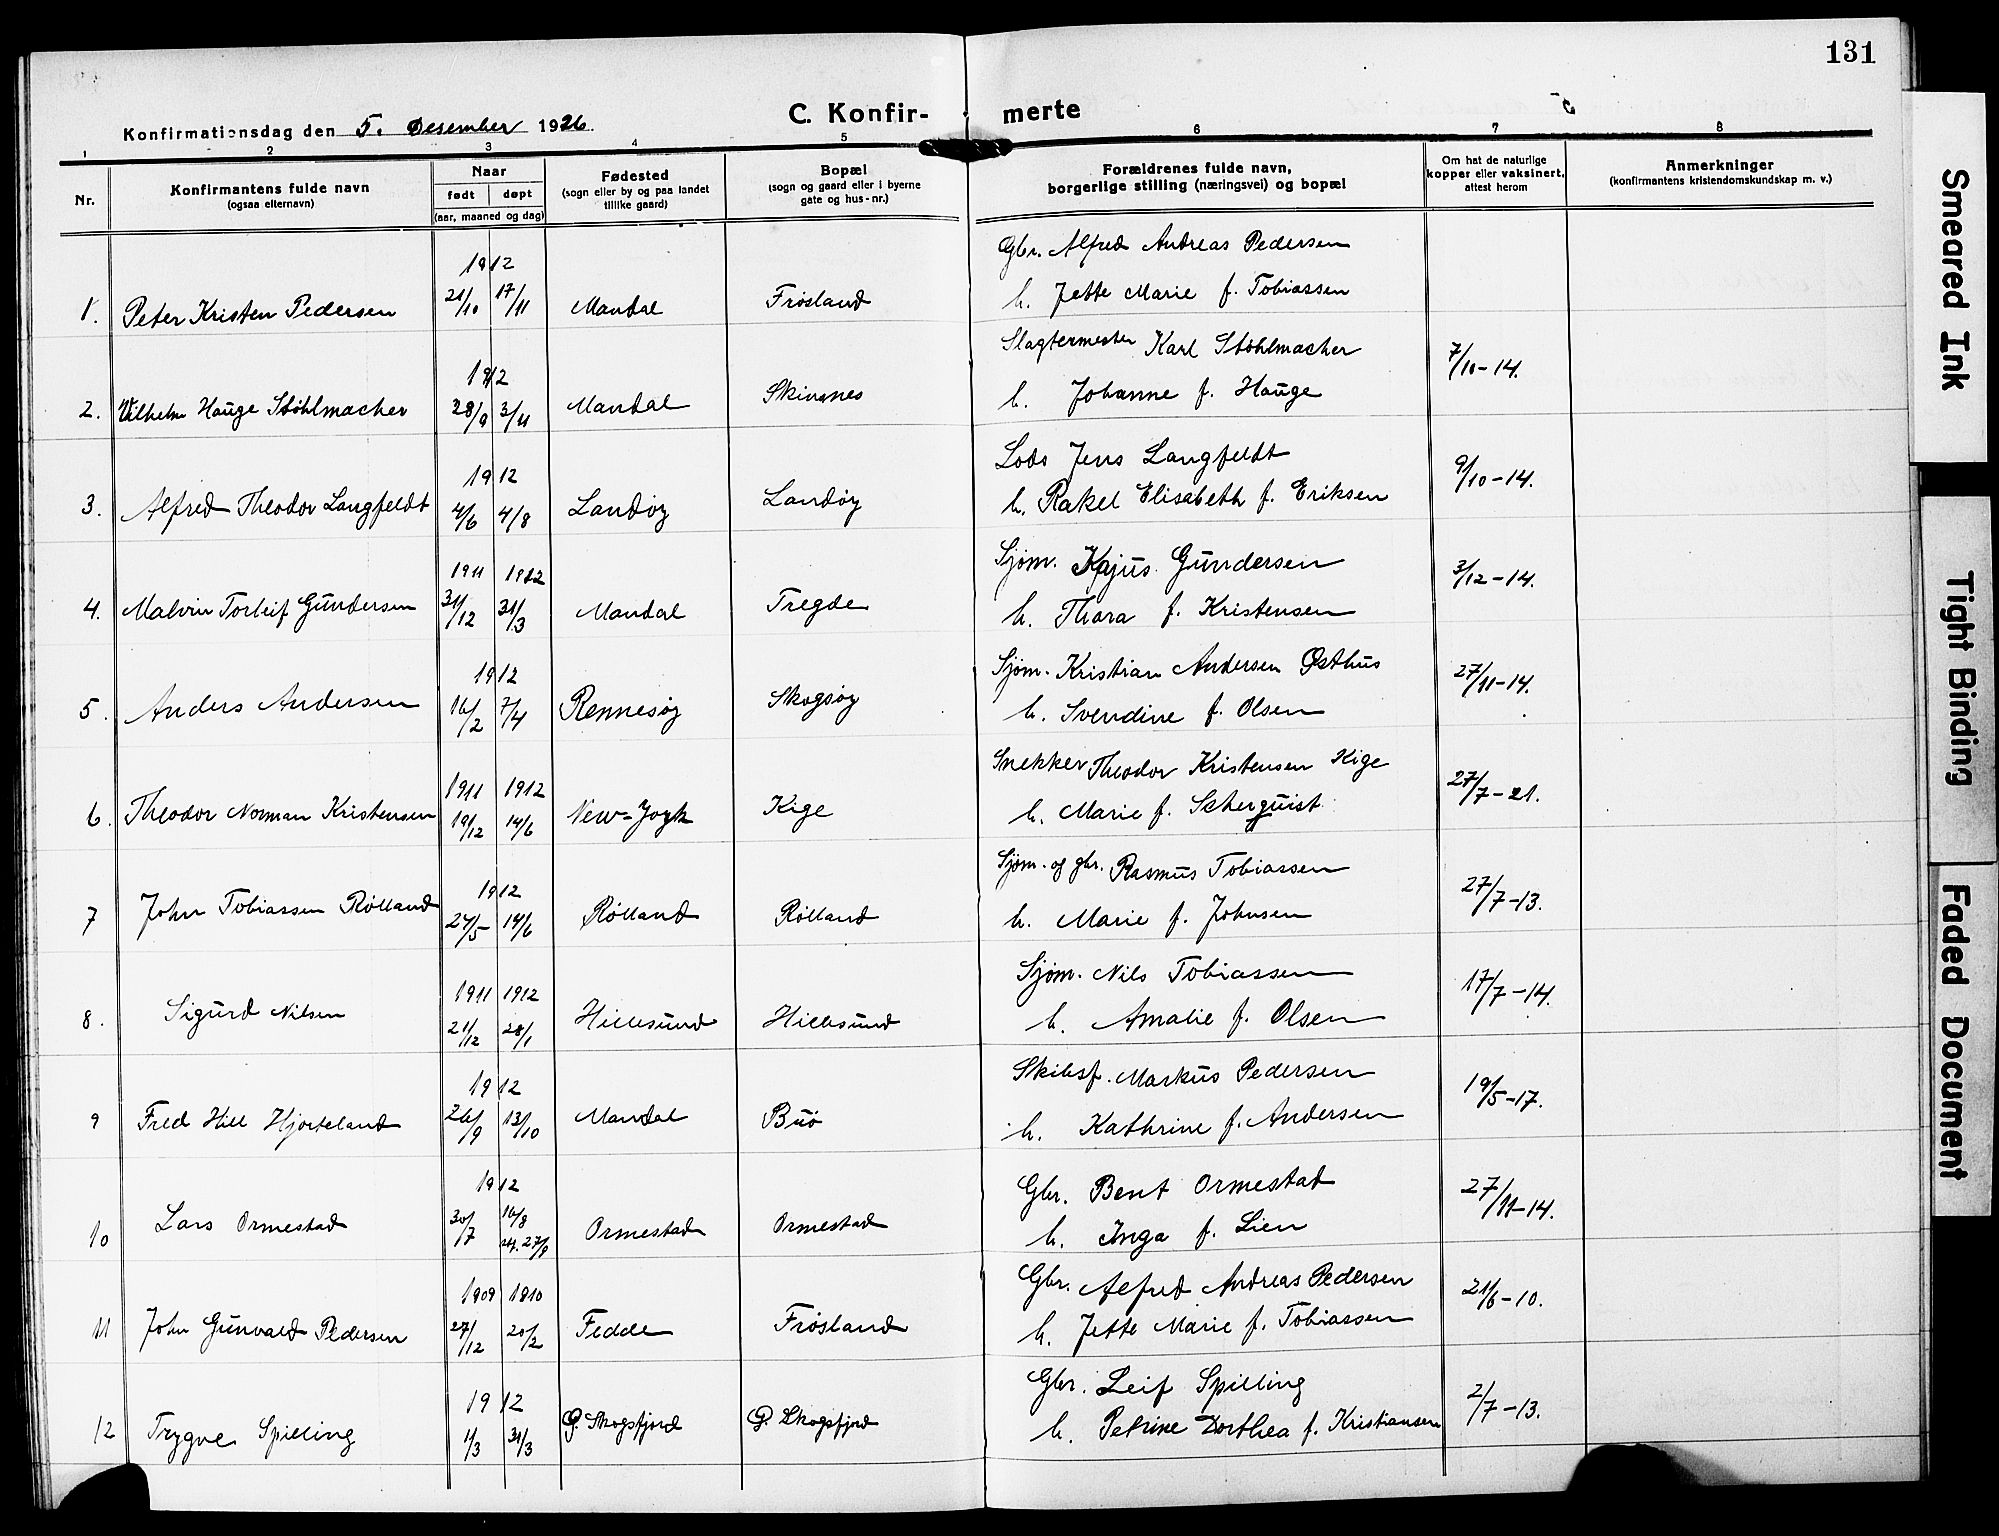 131
C. Konfir- merte
Konfirmationsdag den 5. Desember 1926.
1 2 3 4 5 6 7 8
Nr.
Konfirmantens fulde navn
(ogsaa efternavn)
Naar
født døpt
(aar, maaned og dag)
Fødested
(sogn eller by og paa landet
tillike gaard)
Bopæl
(sogn og gaard eller i byerne
gate og hus-nr.)
Forældrenes fulde navn,
borgerlige stilling (næringsvei) og bopæl
Om hat de naturlige
kopper eller vaksinert,
attest herom
Anmerkninger
(konfirmantens kristendomskundskap m. v.)
Gbr. Alfred Andreas Pedersen
1912
1. Peter Kristen Pedersen 21/10 17/11 Mandal Frøsland h. Jette Marie f. Tobiassen
Slagtermester Karl Støhlmacher 7/10-14.
1912
2. Vilhelm Hauge Støhlmacher 28/9 3/11 Mandal Skinsnes h. Johanne f. Hauge
Lods Jens Langfeldt 9/10-14.
1912
3. Alfred Theodor Langfeldt 4/6 4/8 Landøy Landøy h. Rakel Elisabeth f. Eriksen
Sjøm. Kajus Gundersen 3/12-14.
1911 1912
4. Malvin Torleif Gundersen 31/12 31/3 Mandal Tregde h. Thora f. Kristensen
Sjøm. Kristian Andersen Østhus 27/11-14.
1912
5. Anders Andersen 16/2 7/4 Rennesøy Skogsøy h. Svendine f. Olsen
Snekker Theodor Kristensen Kige 27/7-21.
1911 1912
6. Theodor Norman Kristensen 19/12 14/6 New-York Kige h. Marie f. Scherquist
Sjøm. og gbr. Rasmus Tobiassen 27/7-13.
1912
7 John Tobiassen Rølland 27/5 14/6 Rølland Rølland h. Marie f. Johnsen
Sjøm. Nils Tobiassen 17/7-14.
1911 1912
8. Sigurd Nilsen 21/12 28/1 Hillesund Hillesund h. Amalie f. Olsen
Skibsf. Markus Pedersen 19/5-17.
1912
9 Fred Hill Hjorteland 26/9 13/10 Mandal Buø h. Kathrine f. Andersen
Gbr. Bent Ormestad 27/11-14.
1912
10 Lars Ormestad 30/7 16/8 27/9 Ormestad Ormestad h. Inga f. Lien
Gbr. Alfred Andreas Pedersen 21/6-10.
1909 1910
11 John Gunvald Pedersen 27/12 20/2 Fedde Frøsland h. Jette Marie f. Tobiassen
Gbr. Leif Spilling 2/7-13.
1912
12 Trygve Spilling 1/3 31/3 G. Skogsfjord G. Skogsfjord h. Petrine Dorthea f. Kristiansen
Smeared Ink
Tight Binding
Faded Document